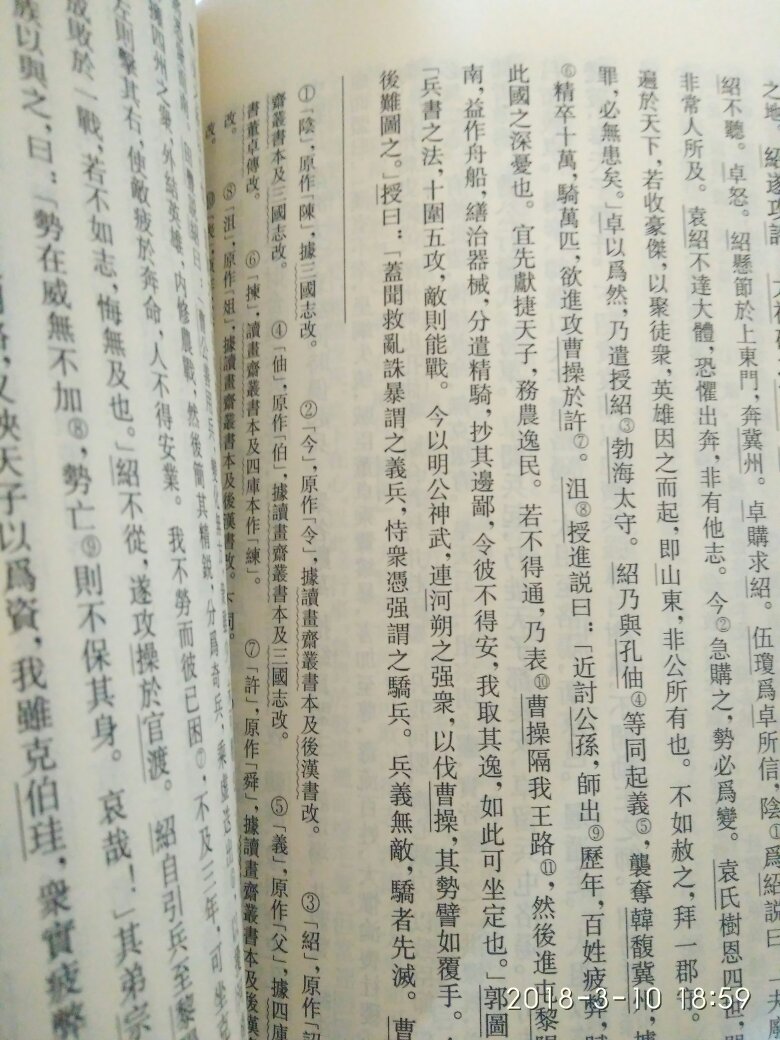 之地。紹遂攻
紹不聽。卓怒。紹懸節於上東門，奔冀州。卓購求紹。伍瓊爲卓所信，陰①爲紹説曰
非常人所及。袁紹不達大體，恐懼出奔，非有他志。今②急購之，勢必爲變。袁氏樹恩四世，門
遍於天下，若收豪傑，以聚徒衆，英雄因之而起，即山東，非公所有也。不如赦之，拜一郡守。
罪，必無患矣。」卓以爲然，乃遣授紹③勃海太守。紹乃與孔伷④等同起義⑤，襲奪韓馥冀
⑥精卒十萬，騎萬匹，欲進攻曹操於許⑦。沮⑧授進説曰：「近討公孫，師出⑨歷年，百姓疲弊，
此國之深憂也。宜先獻捷天子，務農逸民。若不得通，乃表⑩曹操隔我王路⑪，然後進屯黎陽
南，益作舟船，繕治器械，分遣精騎，抄其邊鄙，令彼不得安，我取其逸，如此可坐定也。」郭圖
「兵書之法，十圍五攻，敵則能戰。今以明公神武，連河朔之强衆，以伐曹操，其勢譬如覆手。
後難圖之。」授曰：「蓋聞救亂誅暴謂之義兵，恃衆憑强謂之驕兵。兵義無敵，驕者先滅。曹
①「陰」，原作「陳」，據三國志改。 ②「今」，原作「令」，據讀畫齋叢書本及後漢書改。 ③「紹」，原作
齋叢書本及三國志改。 ④「伷」，原作「伯」，據讀畫齋叢書本及三國志改。 ⑤「義」，原作「父」，據四庫
書董卓傳改。 ⑥「揀」，讀畫齋叢書本及四庫本作「練」。 ⑦「許」，原作「舜」，據讀畫齋叢書本及後漢
改。 ⑧「沮」，原作「姐」，據讀畫齋叢書本及後漢書改。下同。
改。
外結英雄，内修農戰，然後簡其精鋭，分爲奇兵，乘虚迭出
左則擊其右，使敵疲於奔命，人不得安業。我不勞而彼已困⑦，不及三年，可坐克
成敗於一戰，若不如志，悔無及也。」紹不從，遂攻操於官渡。紹自引兵至黎陽
族以與之，曰：「勢在威無不加⑧，勢亡⑨則不保其身。哀哉！」其弟宗
又挾天子以爲資，我雖克伯珪，衆實疲弊
2018-3-10 18:59